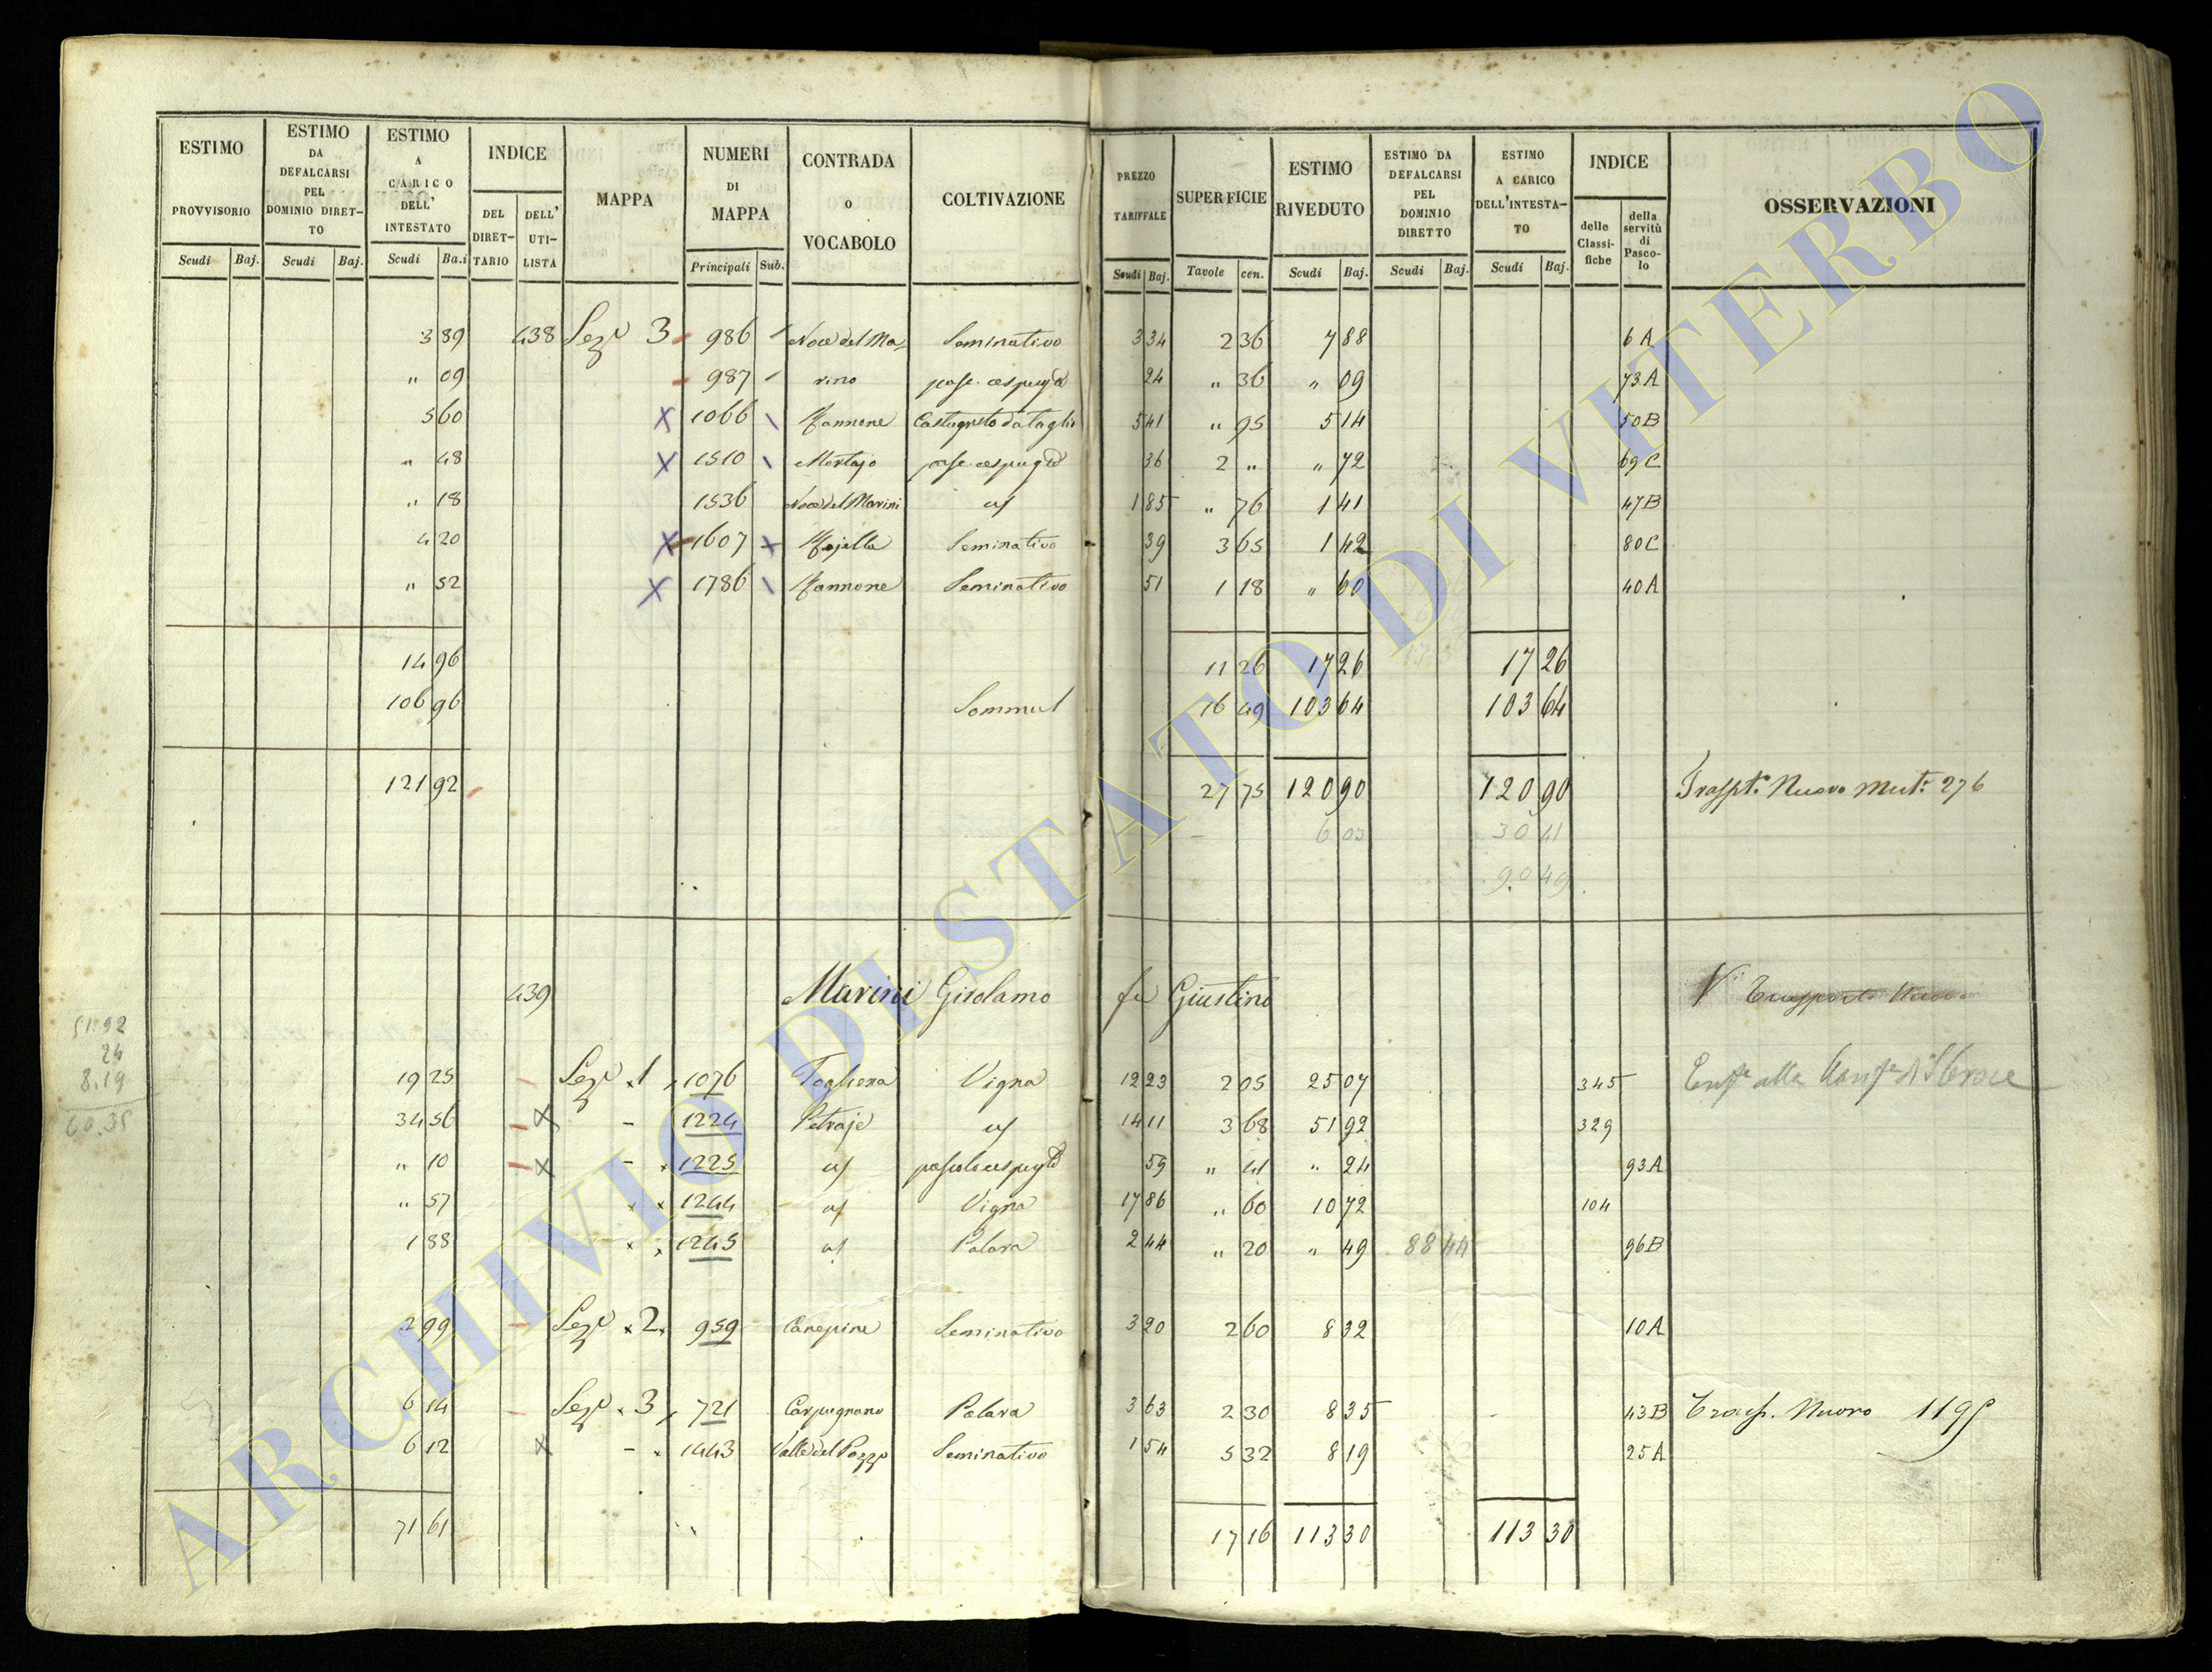 ESTIMO PROVVISORIO
Scudi Baj.
ESTIMO DA DEFALCARSI PEL DOMINIO DIRET-TO
Scudi Baj.
ESTIMO A CARICO DELL' INTESTATO
Scudi Ba.i
INDICE
DEL DIRET-TARIO
DELL' UTI-LISTA
MAPPA
NUMERI DI MAPPA
Principali Sub.
CONTRADA o VOCABOLO
COLTIVAZIONE
PREZZO TARIFFALE
Scudi Baj.
SUPERFICIE
Tavole cen.
ESTIMO RIVEDUTO
Scudi Baj.
ESTIMO DA DEFALCARSI PEL DOMINIO DIRETTO
Scudi Baj.
ESTIMO A CARICO DELL'INTESTA-TO
Scudi Baj.
INDICE
delle Classi-fiche
della servitù di Pasco-lo
OSSERVAZIONI
3 89 438 Seze 3 986 Noce del Ma- Seminativo 3 34 2 36 7 88 6A
" 09 987 rino pasc. cespugto 24 " 36 " 09 73A
5 60 1066 Castagneto da taglio 5 41 " 95 5 14 50B
" 48 1510 Mortajo pasc. cespugto 36 2 " " 72 69C
" 18 1536 Noce del Marini 1 85 " 76 1 41 47B
4 20 1607 Seminativo 39 3 65 1 42 80C
" 52 1786 Seminativo 51 1 18 " 60 40A
14 96 11 26 17 26 17 26
106 96 16 49 103 64 103 64
121 92 27 75 120 90 120 90 Traspto Nuovo Muta 276
30 41
90 49
439 Marini Girolamo fu Giustino
51:92
24
8.19
60.35
19 25 Seze 1 1076 Togliena Vigna 12 23 2 05 25 07 345
34 56 1224 Petraje 14 11 3 68 51 92 329
" 10 1225 pascolo cespugto 59 " 41 " 24 93A
" 57 1244 Vigna 17 86 " 60 10 72 104
1 88 1245 2 44 " 20 " 49 88 44 96B
2 99 Seze 2 959 Canepine Seminativo 3 20 2 60 8 32 10A
6 14 Seze 3 721 Carpugnano 3 63 2 30 8 35 43B Trasp. Nuovo 1195
6 12 1443 Valle del Pozzo Seminativo 1 54 5 32 8 19 25A
71 61 17 16 113 30 113 30
ARCHIVIO DI STATO DI VITERBO